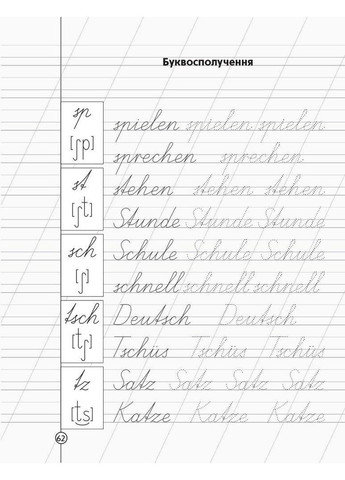 Буквосполучення
sp spielen spielen spielen
[ʃp] sprechen sprechen
st stehen stehen stehen
[ʃt] Stunde Stunde Stunde
sch Schule Schule Schule
[ʃ] schnell schnell schnell
tsch Deutsch Deutsch
[tʃ] Tschüs Tschüs Tschüs
tz Satz Satz Satz Satz
[ts] Katze Katze Katze
62